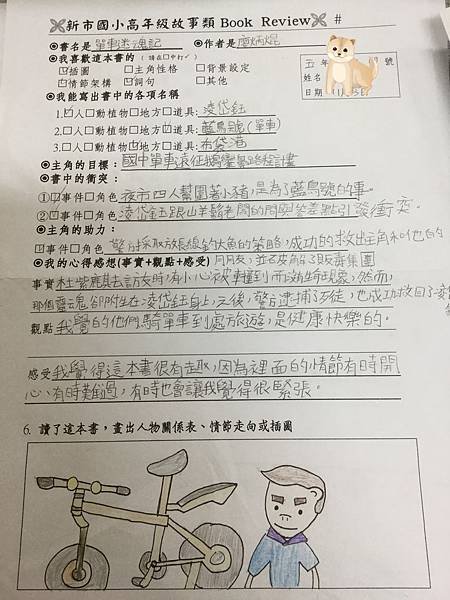 新市國小高年級故事類 Book Review #
◉書名是 單車迷魂記 ◉作者是 廖炳焜
◉我喜歡這本書的(請在□中打✓)
☑插圖 □主角性格 □背景設定
☑情節架構 ☑詞句 □其他
五年
姓名
日期
◉我能寫出書中的各項名稱
1.☑人□動植物□地方□道具: 凌岱鈺
2.□人□動植物□地方☑道具: 藍鳥號(單車)
3.□人□動植物☑地方□道具: 布袋港
◉主角的目標: 國中單車遠征鵝鑾鼻路程計畫
◉書中的衝突:
①☑事件□角色 夜市四人幫圍著小豬,是為了藍鳥號的事。
②☑事件□角色 凌岱鈺跟山羊鬍老闆的問與答差點引發衝突.
◉主角的助力:
☑事件□角色 警方採取放長線釣大魚的策略,成功的救出主角和他的
◉我的心得感想(事實+觀點+感受) 朋友,並且破解了販毒集團
事實 杜紫鵑去訪友時,有小心被車撞到而演生特現象,然而,
那個靈魂卻附生在凌岱鈺身上,之後,警方逮捕了歹徒,也成功救回了凌
觀點 我覺的他們騎單車到處旅遊,是健康快樂的.
感受 我覺得這本書很有趣取,因為裡面的情節有時開
心、有時難過,有時也會讓我覺得很緊張。
6. 讀了這本書,畫出人物關係表、情節走向或插圖